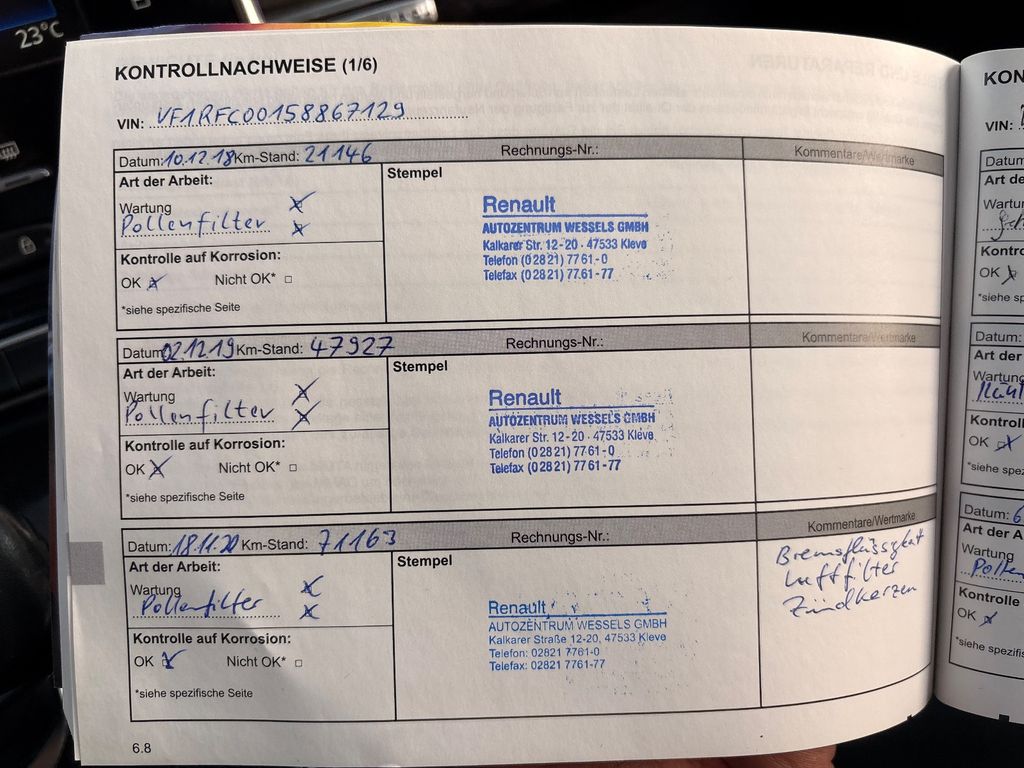 23°C
KONTROLLNACHWEISE (1/6)
VIN: VF1RFC00158867129
Datum: 10.12.18 Km-Stand: 21146 Rechnungs-Nr.: Kommentare/Wertmarke
Art der Arbeit:
Stempel
Wartung
Pollenfilter
Kontrolle auf Korrosion:
OK Nicht OK*
*siehe spezifische Seite
Renault
AUTOZENTRUM WESSELS GMBH
Kalkarer Str. 12-20 · 47533 Kleve
Telefon (02821) 7761-0
Telefax (02821) 7761-77
Datum: 02.12.19 Km-Stand: 47927 Rechnungs-Nr.: Kommentare/Wertmarke
Art der Arbeit:
Stempel
Wartung
Pollenfilter
Kontrolle auf Korrosion:
OK Nicht OK*
*siehe spezifische Seite
Renault
AUTOZENTRUM WESSELS GMBH
Kalkarer Str. 12-20 · 47533 Kleve
Telefon (02821) 7761-0
Telefax (02821) 7761-77
Datum: 18.11.20 Km-Stand: 71163 Rechnungs-Nr.: Kommentare/Wertmarke
Art der Arbeit:
Stempel
Wartung
Pollenfilter
Kontrolle auf Korrosion:
OK Nicht OK*
*siehe spezifische Seite
Renault
AUTOZENTRUM WESSELS GMBH
Kalkarer Straße 12-20, 47533 Kleve
Telefon: 02821 7761-0
Telefax: 02821 7761-77
Bremsflüssigkeit
Luftfilter
Zündkerzen
6.8
KON
VIN:
Datum
Art de
Wartu
Kontro
OK
*siehe sp
Datum:
Art der
Wartung
Kontroll
OK
*siehe spez
Datum: 6
Art der A
Wartung
Pollen
Kontrolle
OK
*siehe spezifis